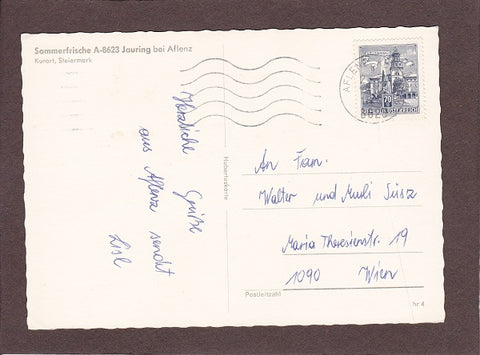 Sommerfrische A-8623 Jauring bei Aflenz
Kurort, Steiermark
Herzliche Grüße
aus Aflenz sendet
Lisl
Hubertuskarte
AFLENZ
8623
70
REPUBLIK ÖSTERREICH
An Fam.
Walter und Murli Süsz
Maria Theresienstr. 19
1090 Wien
Postleitzahl
hr 4